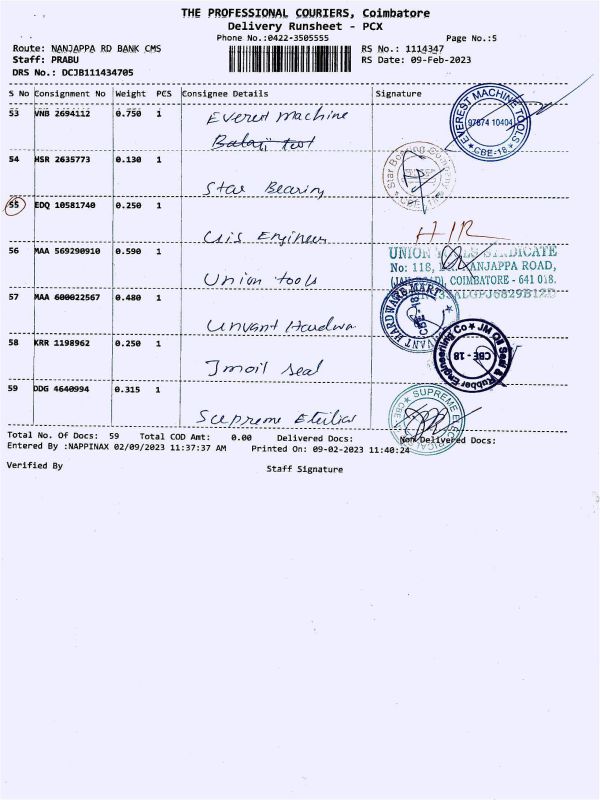 THE PROFESSIONAL COURIERS, Coimbatore
Delivery Runsheet - PCX
Phone No.:0422-3505555
Page No.:5
Route: NANJAPPA RD BANK CMS
RS No.: 1114347
Staff: PRABU
RS Date: 09-Feb-2023
DRS No.: DCJB111434705
S No Consignment No Weight PCS Consignee Details Signature
53 VNB 2694112 0.750 1 Everest Machine
EVEREST MACHINE TOOLS 97874 10404 CBE-18
54 HSR 2635773 0.130 1
Star Bearing Company
Star Bearing
55 EDQ 10581740 0.250 1
Engineers
56 MAA 569290910 0.590 1
UNION TOOLS SYNDICATE
No: 118, NANJAPPA ROAD,
COIMBATORE - 641 018.
Union tools
57 MAA 600022567 0.480 1
HARDWARE MART CBE-18
58 KRR 1198962 0.250 1
JM Oil Seal & Rubber Engineering Co CBE - 18
Jmoil seal
59 DDG 4640994 0.315 1
SUPREME ELECTRICALS
Supreme
Total No. Of Docs: 59 Total COD Amt: 0.00 Delivered Docs: Non Delivered Docs:
Entered By :NAPPINAX 02/09/2023 11:37:37 AM Printed On: 09-02-2023 11:40:24
Verified By
Staff Signature